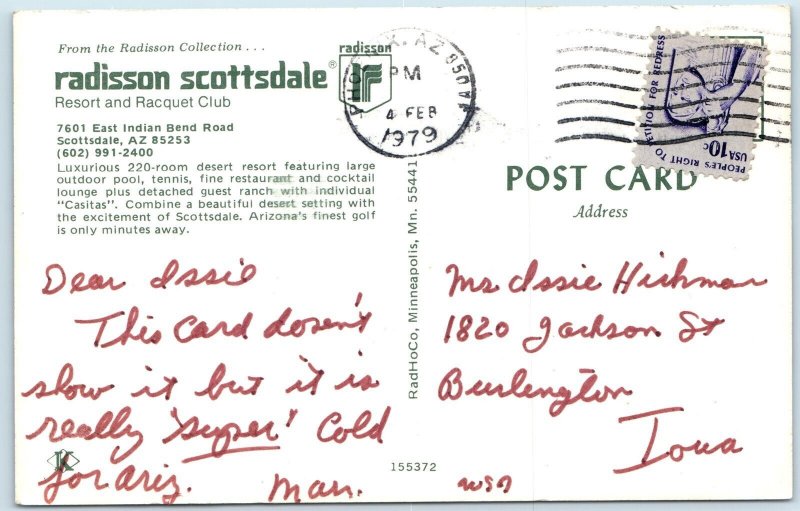 From the Radisson Collection . . .
radisson scottsdale®
Resort and Racquet Club
7601 East Indian Bend Road
Scottsdale, AZ 85253
(602) 991-2400
Luxurious 220-room desert resort featuring large
outdoor pool, tennis, fine restaurant and cocktail
lounge plus detached guest ranch with individual
"Casitas". Combine a beautiful desert setting with
the excitement of Scottsdale. Arizona's finest golf
is only minutes away.
radisson
PHOENIX, AZ 850
PM
4 FEB
1979
PETITION FOR REDRESS
PEOPLE'S RIGHT TO
USA 10c
POST CARD
Address
RadHoCo, Minneapolis, Mn. 55441
Dear Issie
This Card dosen't
show it but it is
really 'super' Cold
for Ariz.
Mar.
Mrs Issie Hickman
1820 Jackson St
Burlington
Iowa
K
155372